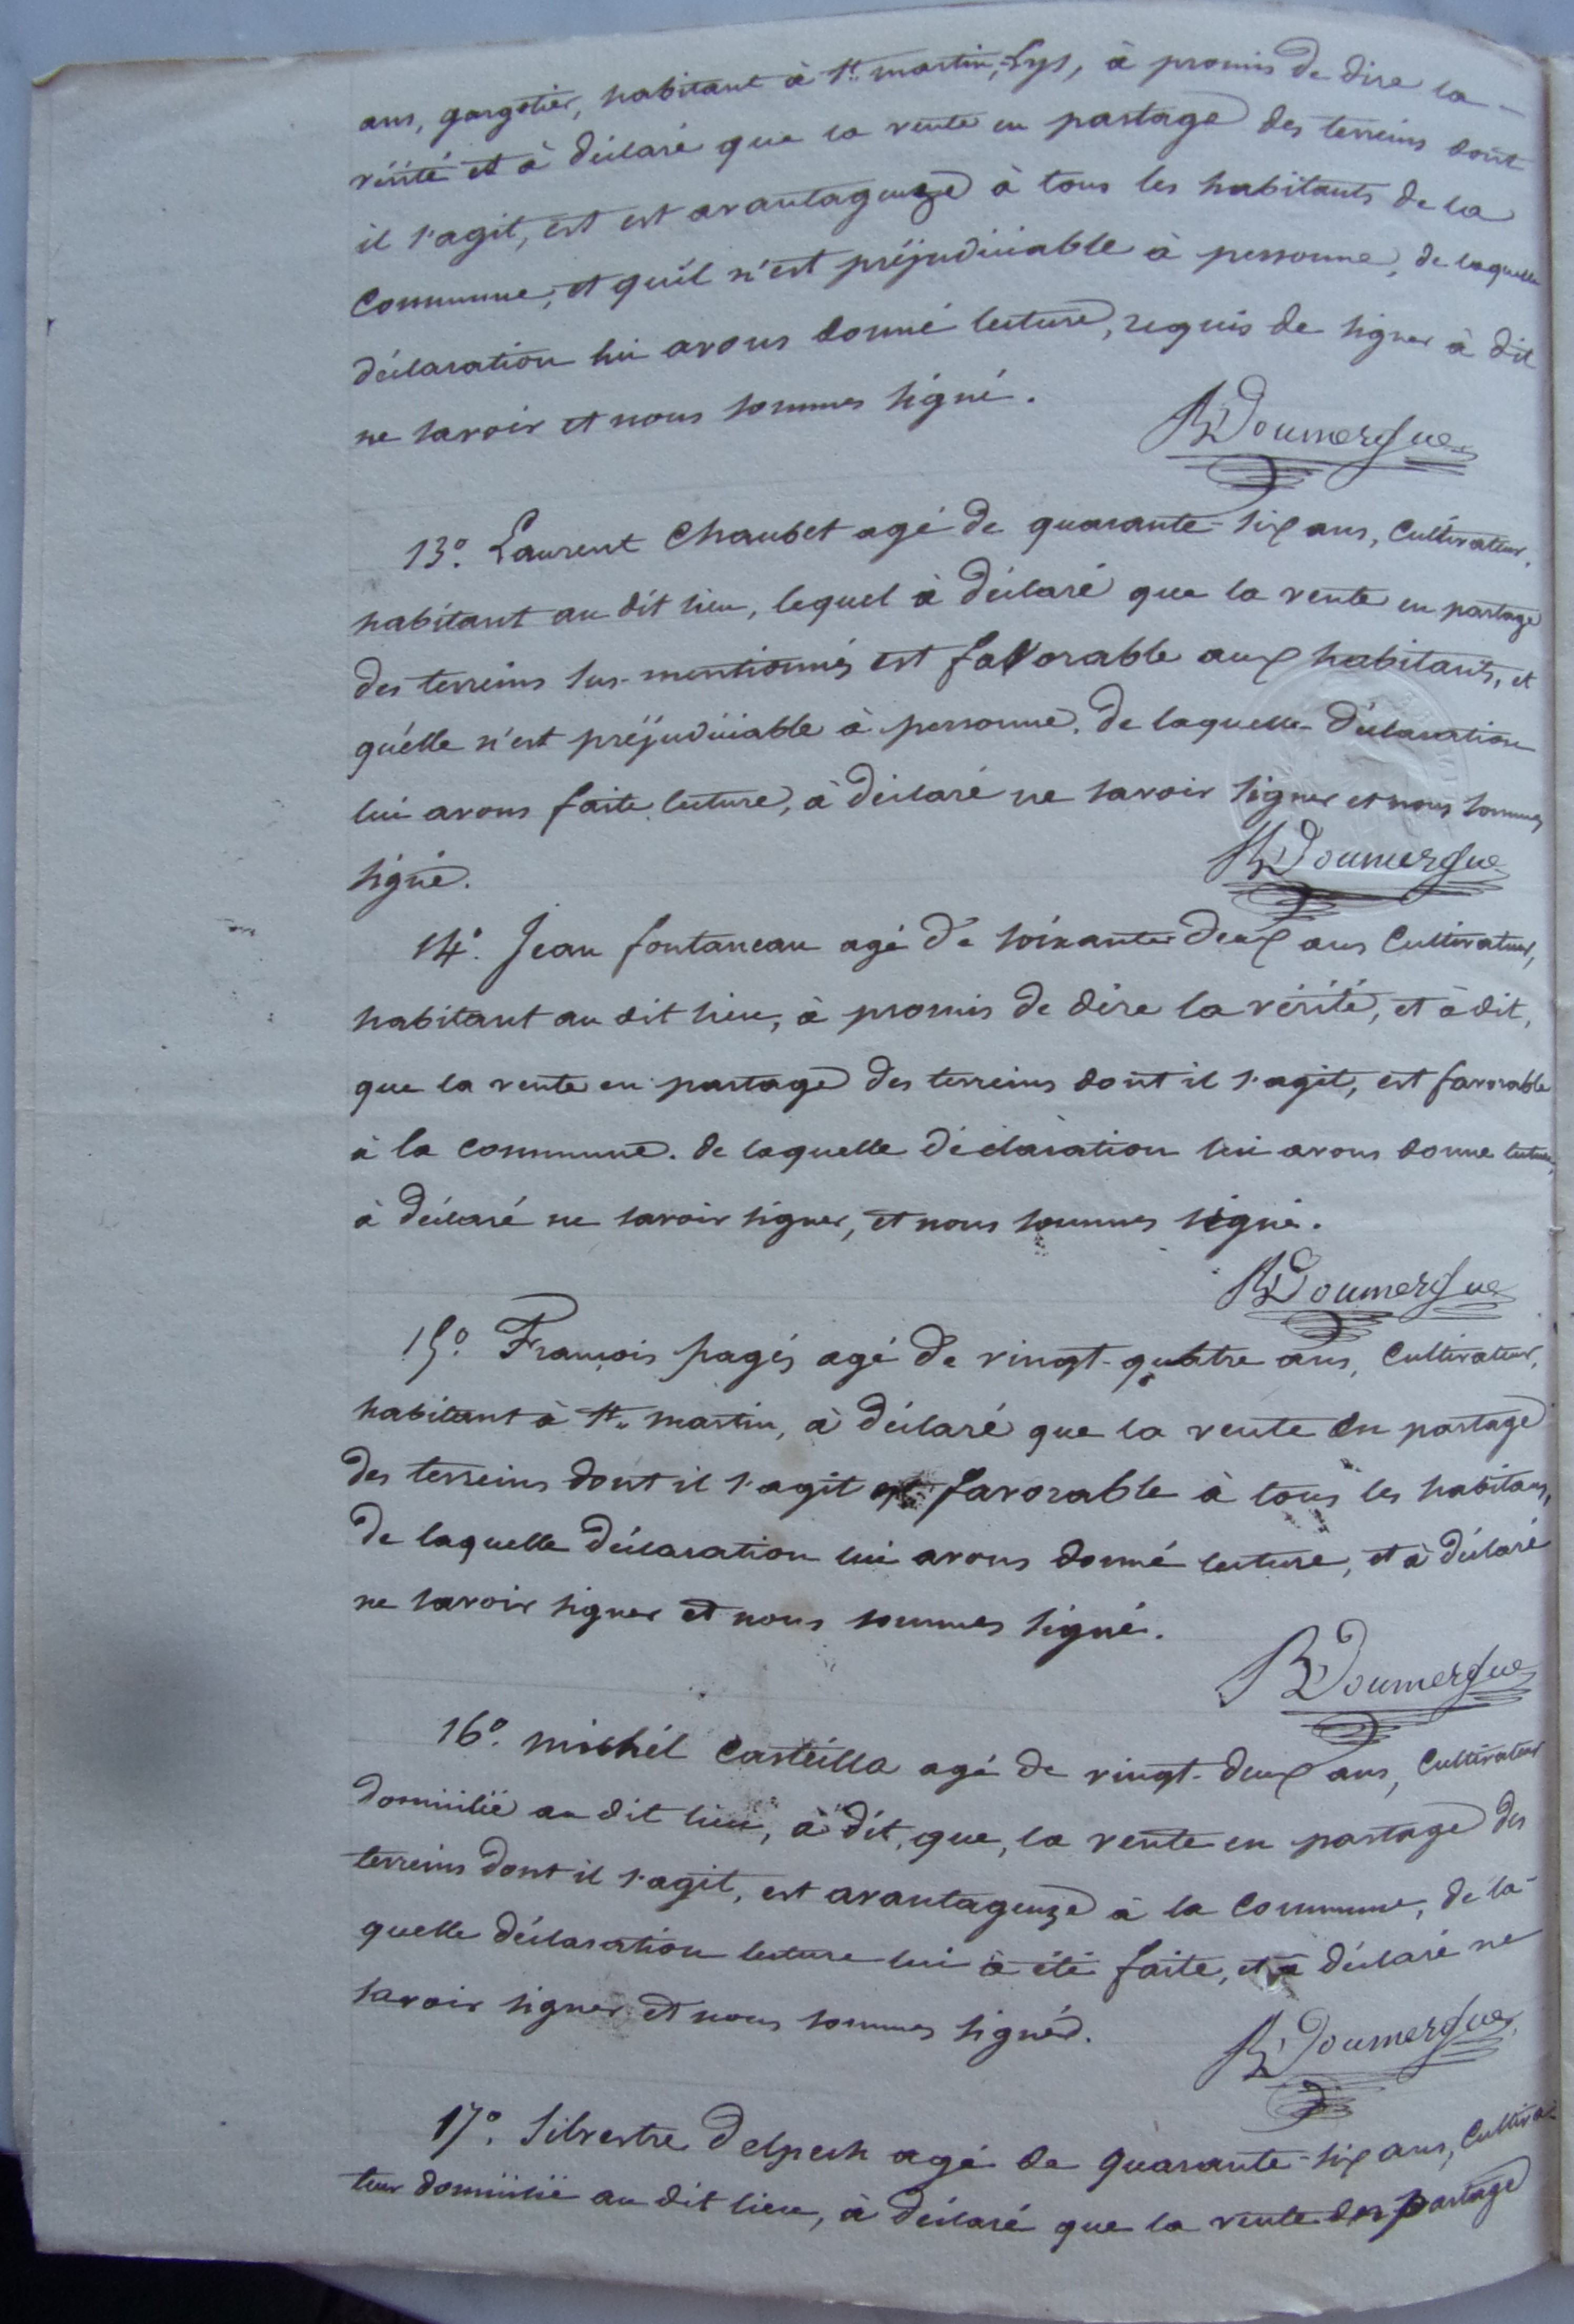 ans, gargotier, habitant à St. martin-Lys, à promis de dire la
vérité et à déclaré que la vente en partage des terreins dont
il s'agit, est est avantageuze à tous les habitants de la
Commune, et qu'il n'est préjudiciable à personne, de laquelle
déclaration lui avons donné lecture, requis de signer à dit
ne savoir et nous sommes signé.
RDoumergue
13°. Laurent Chaubet agé de quarante-six ans, Cultivateur,
habitant au dit lieu, lequel à déclaré que la vente en partage
des terreins sus-mentionnés est favorable aux habitants, et
qu'elle n'est préjudiciable à personne. de laquelle déclaration
lui avons faite lecture, à déclaré ne savoir signer et nous sommes
signé.
RDoumergue
14°. Jean fontaneau agé de soixante deux ans Cultivateur,
habitant au dit lieu, à promis de dire la vérité, et à dit,
que la vente en partage des terreins dont il s'agit, est favorable
à la commune. de laquelle déclaration lui avons donne lecture,
à déclaré ne savoir signer, et nous sommes signé.
RDoumergue
15°. François pagés agé de vingt-quatre ans, Cultivateur,
habitant à St. martin, à déclaré que la vente en partage
des terreins dont il s'agit est favorable à tous les habitans,
de laquelle déclaration lui avons donné lecture, et à déclaré
ne savoir signer et nous sommes signé.
RDoumergue
16°. michél Casteilla agé de vingt-deux ans, Cultivateur
domicilié au dit lieu, à dit, que, la vente en partage des
terreins dont il s'agit, est avantageuze à la Commune, de la-
quelle déclaration lecture lui à été faite, et à déclaré ne
savoir signer et nous sommes signé.
RDoumergue
17°. Silvestre Delpech agé de quarante-six ans, Cultiva-
teur domicilié au dit lieu, à déclaré que la vente en partage